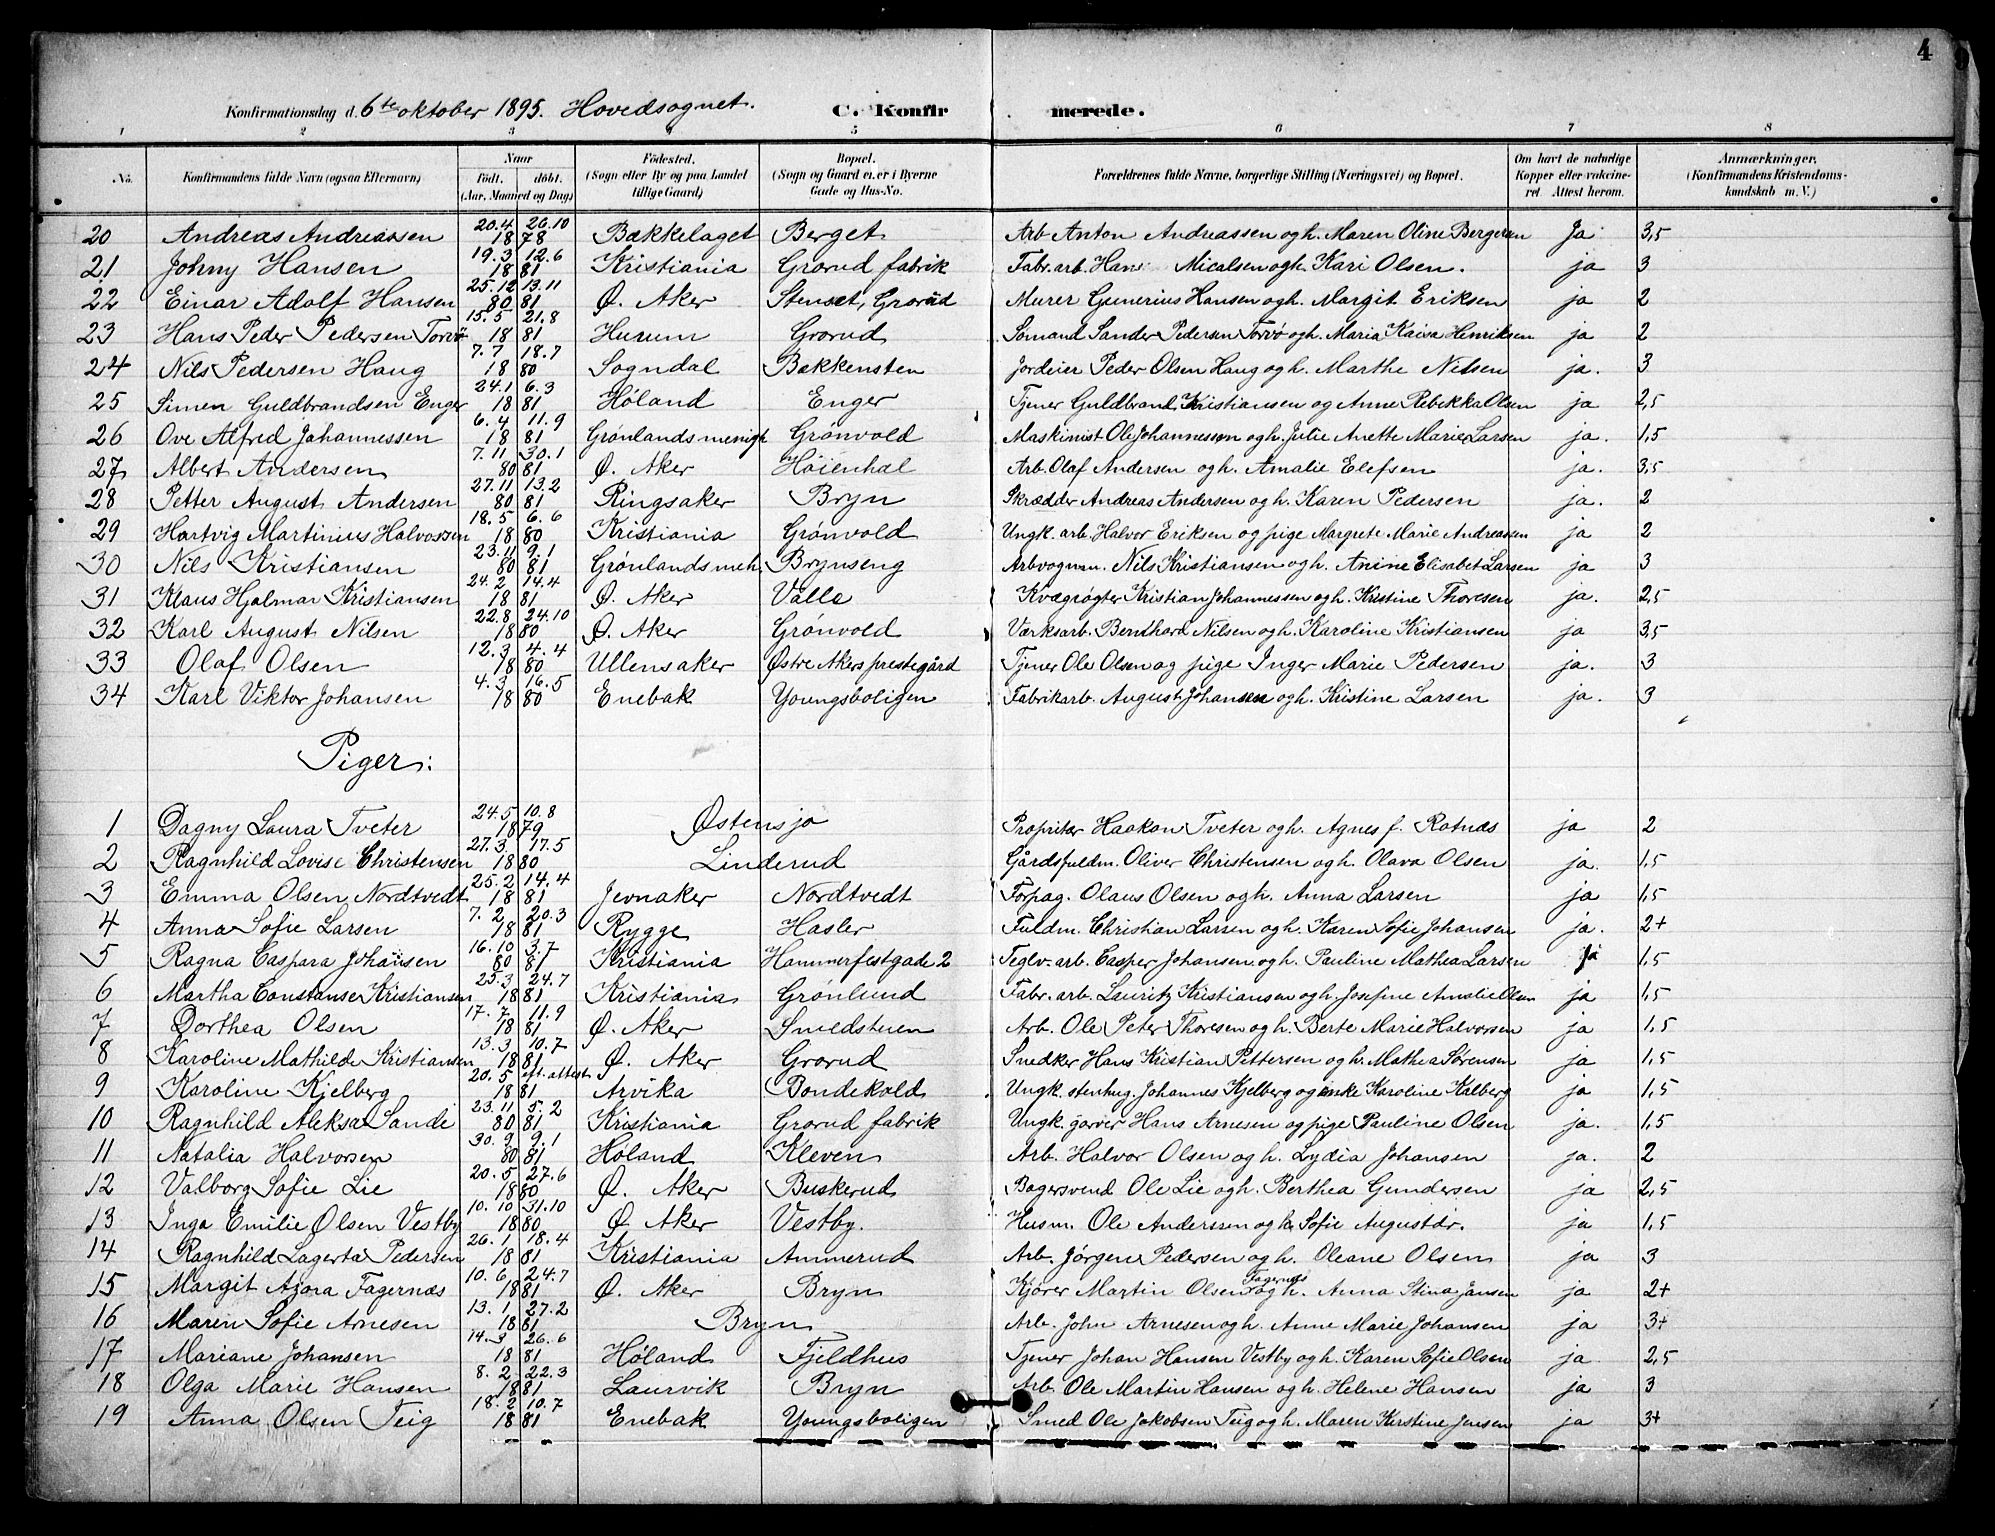 4
Konfirmationsdag d. 6te oktober 1895. Hovedsognet. C. Konfirmerede.
1 2 3 4 5 6 7 8
No. Konfirmandens fulde Navn (ogsaa Efternavn) Naar Født. døbt. (Aar, Maaned og Dag) Fødested. (Sogn eller By og paa Landet tillige Gaard) Bopæl. (Sogn og Gaard ei. er i Byerne Gade og Hus-No. Forældrenes fulde Navne, borgerlige Stilling (Næringsvei) og Bopæl. Om havt de naturlige Kopper eller vaccineret Attest herom. Anmærkninger. (Konfirmandens Kristendomskundskab m. V.)
20 Andreas Andreassen 20.4 1878 26.10 Bækkelaget Berget Arb Anton Andreassen og h. Maren Oline Bergersen Ja 3,5
21 Johny Hansen 19.3 1881 12.6 Kristiania Grorud fabrik Fabr. arb. Hans Micalsen og h. Kari Olsen. ja 3
22 Einar Adolf Hansen 25.12 80 13.11 81 Ø. Aker Stenset, Grorud Murer Gunerius Hansen og h. Margit Eriksen ja 2
23 Hans Peder Pedersen Torvø 15.5 1881 21.8 Hurum Grorud Sømand Sander Pedersen Torvø og h. Maria Kaisa Henriksen ja 2
24 Nils Pedersen Haug 7.7 1880 18.7 Sogndal Bakkensten Jordeier Peder Olsen Haug og h. Marthe Nilsen ja. 3
25 Simen Guldbrandsen Enger 24.1 1881 6.3 Høland Enger Tjener Guldbrand Kristiansen og Anne Rebekka Olsen ja 2,5
26 Ove Alfred Johannessen 6.4 1881 11.9 Grønlands menigh Grønvold Maskinist Ole Johannessen og h. Julie Anette Marie Larsen ja. 1,5
27 Albert Andersen 7.11 80 30.1 81 Ø. Aker Høienhal Arb. Olaf Andersen og h. Amalie Elefsen ja. 3,5
28 Petter August Andersen 27.11 80 13.2 81 Ringsaker Bryn Skrædder Andreas Andersen og h. Karen Pedersen ja. 2
29 Hartvig Martinius Halvorsen 18.5 1880 6.6 Kristiania Grønvold Ungk. arb. Halvor Eriksen og pige Margrete Marie Andreassen ja 2
30 Nils Kristiansen 23.11 80 9.1 81 Grønlands meh. Brynseng Arbvognm. Nils Kristiansen og h. Anine Elisabet Larsen ja 3
31 Klaus Hjalmar Kristiansen 24.2 1881 14.4 Ø. Aker Valle Kvægrøgter Kristian Johannessen og h. Kristine Thoresen ja. 2,5
32 Karl August Nilsen 22.8 1880 24.10 Ø. Aker Grønvold Værksarb. Bernthard Nilsen og h. Karoline Kristiansen ja 3,5
33 Olaf Olsen 12.3 1880 4.4 Ullensaker Østre Akers prestegård Tjener Ole Olsen og pige Inger Marie Pedersen ja. 3
34 Karl Viktor Johansen 4.3 1880 16.5 Enebak Youngsboligen Fabrikarb. August Johansen og h. Kristine Larsen ja. 3
Piger:
1 Dagny Laura Tveter 24.5 1879 10.8 Østensjo Propritær Haakon Tveter og h. Agnes f. Rotnæs ja 2
2 Ragnhild Lovise Christensen 27.3 1880 17.5 Linderud Gårdsfuldm. Oliver Christensen og h. Olava Olsen ja. 1,5
3 Emma Olsen Nordtvedt 25.2 1881 14.4 Jevnaker Nordtvedt Forpag. Olaus Olsen og h. Anna Larsen ja 1,5
4 Anna Sofie Larsen 7.2 1881 20.3 Rygge Hasler Fuldm. Christian Larsen og h. Karen Sofie Johansen ja. 2+
5 Ragna Caspara Johansen 16.10 80 3.7 81 Kristiania Hammerfestgade 2 Teglv. arb. Casper Johansen og h. Pauline Mathea Larsen ja 1,5
6 Martha Constanse Kristiansen 25.3 1881 24.7 Kristiania Grønlund Fabr. arb. Lauritz Kristiansen og h. Josefine Amalie Olsen ja 1,5
7 Dorthea Olsen 17.7 1881 11.9 Ø. Aker Smedstuen Arb. Ole Peter Thoresen og h. Berte Marie Halvorsen ja 1,5
8 Karoline Mathilde Kristiansen 13.3 1881 10.7 Ø. Aker Grorud Snedker Hans Kristian Pettersen og h. Mathea Sørensen ja 1,5
9 Karoline Kjelberg 20.5 1881 eft. attest Arvika Bondekold Ungk. stenhug. Johannes Kjelberg og enke Karoline Kalberg ja 1,5
10 Ragnhild Aleksa Sande 23.11 80 5.2 81 Kristiania Grorud fabrik Ungk. garver Hans Arnesen og pige Pauline Olsen ja. 1,5
11 Natalia Halvorsen 30.9 80 9.1 81 Høland Kleven Arb. Halvor Olsen og h. Lydia Johansen ja. 2
12 Valborg Sofie Lie 20.5 1880 27.6 Ø. Aker Buskerud Bagersvend Ole Lie og h. Berthea Gundersen ja 2,5
13 Inga Emilie Olsen Vestby 10.10 1880 31.10 Ø. Aker Vestby. Husm. Ole Anderssen og h. Sofie Augustdr. ja 1,5
14 Ragnhild Lagerta Pedersen 26.1 1881 18.4 Kristiania Ammerud Arb. Jørgen Pedersen og h. Oleane Olsen ja 3
15 Margit Azora Fagernæs 10.6 1881 24.7 Ø. Aker Bryn Kjører Martin Olsen Fagernæs og h. Anna Stina Jansen ja 2+
16 Maren Sofie Arnesen 13.1 1881 27.2 Bryn Arb. John Arnesen og h. Anne Marie Johansen ja 3+
17 Mariane Johansen 14.3 1881 26.6 Høland Fjeldhus Tjener Johan Hansen Vestby og h. Karen Sofie Olsen ja 2,5
18 Olga Marie Hansen 8.2 1881 22.3 Laurvik Bryn Arb. Ole Martin Hansen og h. Helene Hansen ja 3
19 Anna Olsen Teig 18.2 1881 10.7 Enebak Youngsboligen Smed Ole Jakobsen Teig og h. Maren Kirstine Jensen ja 3+